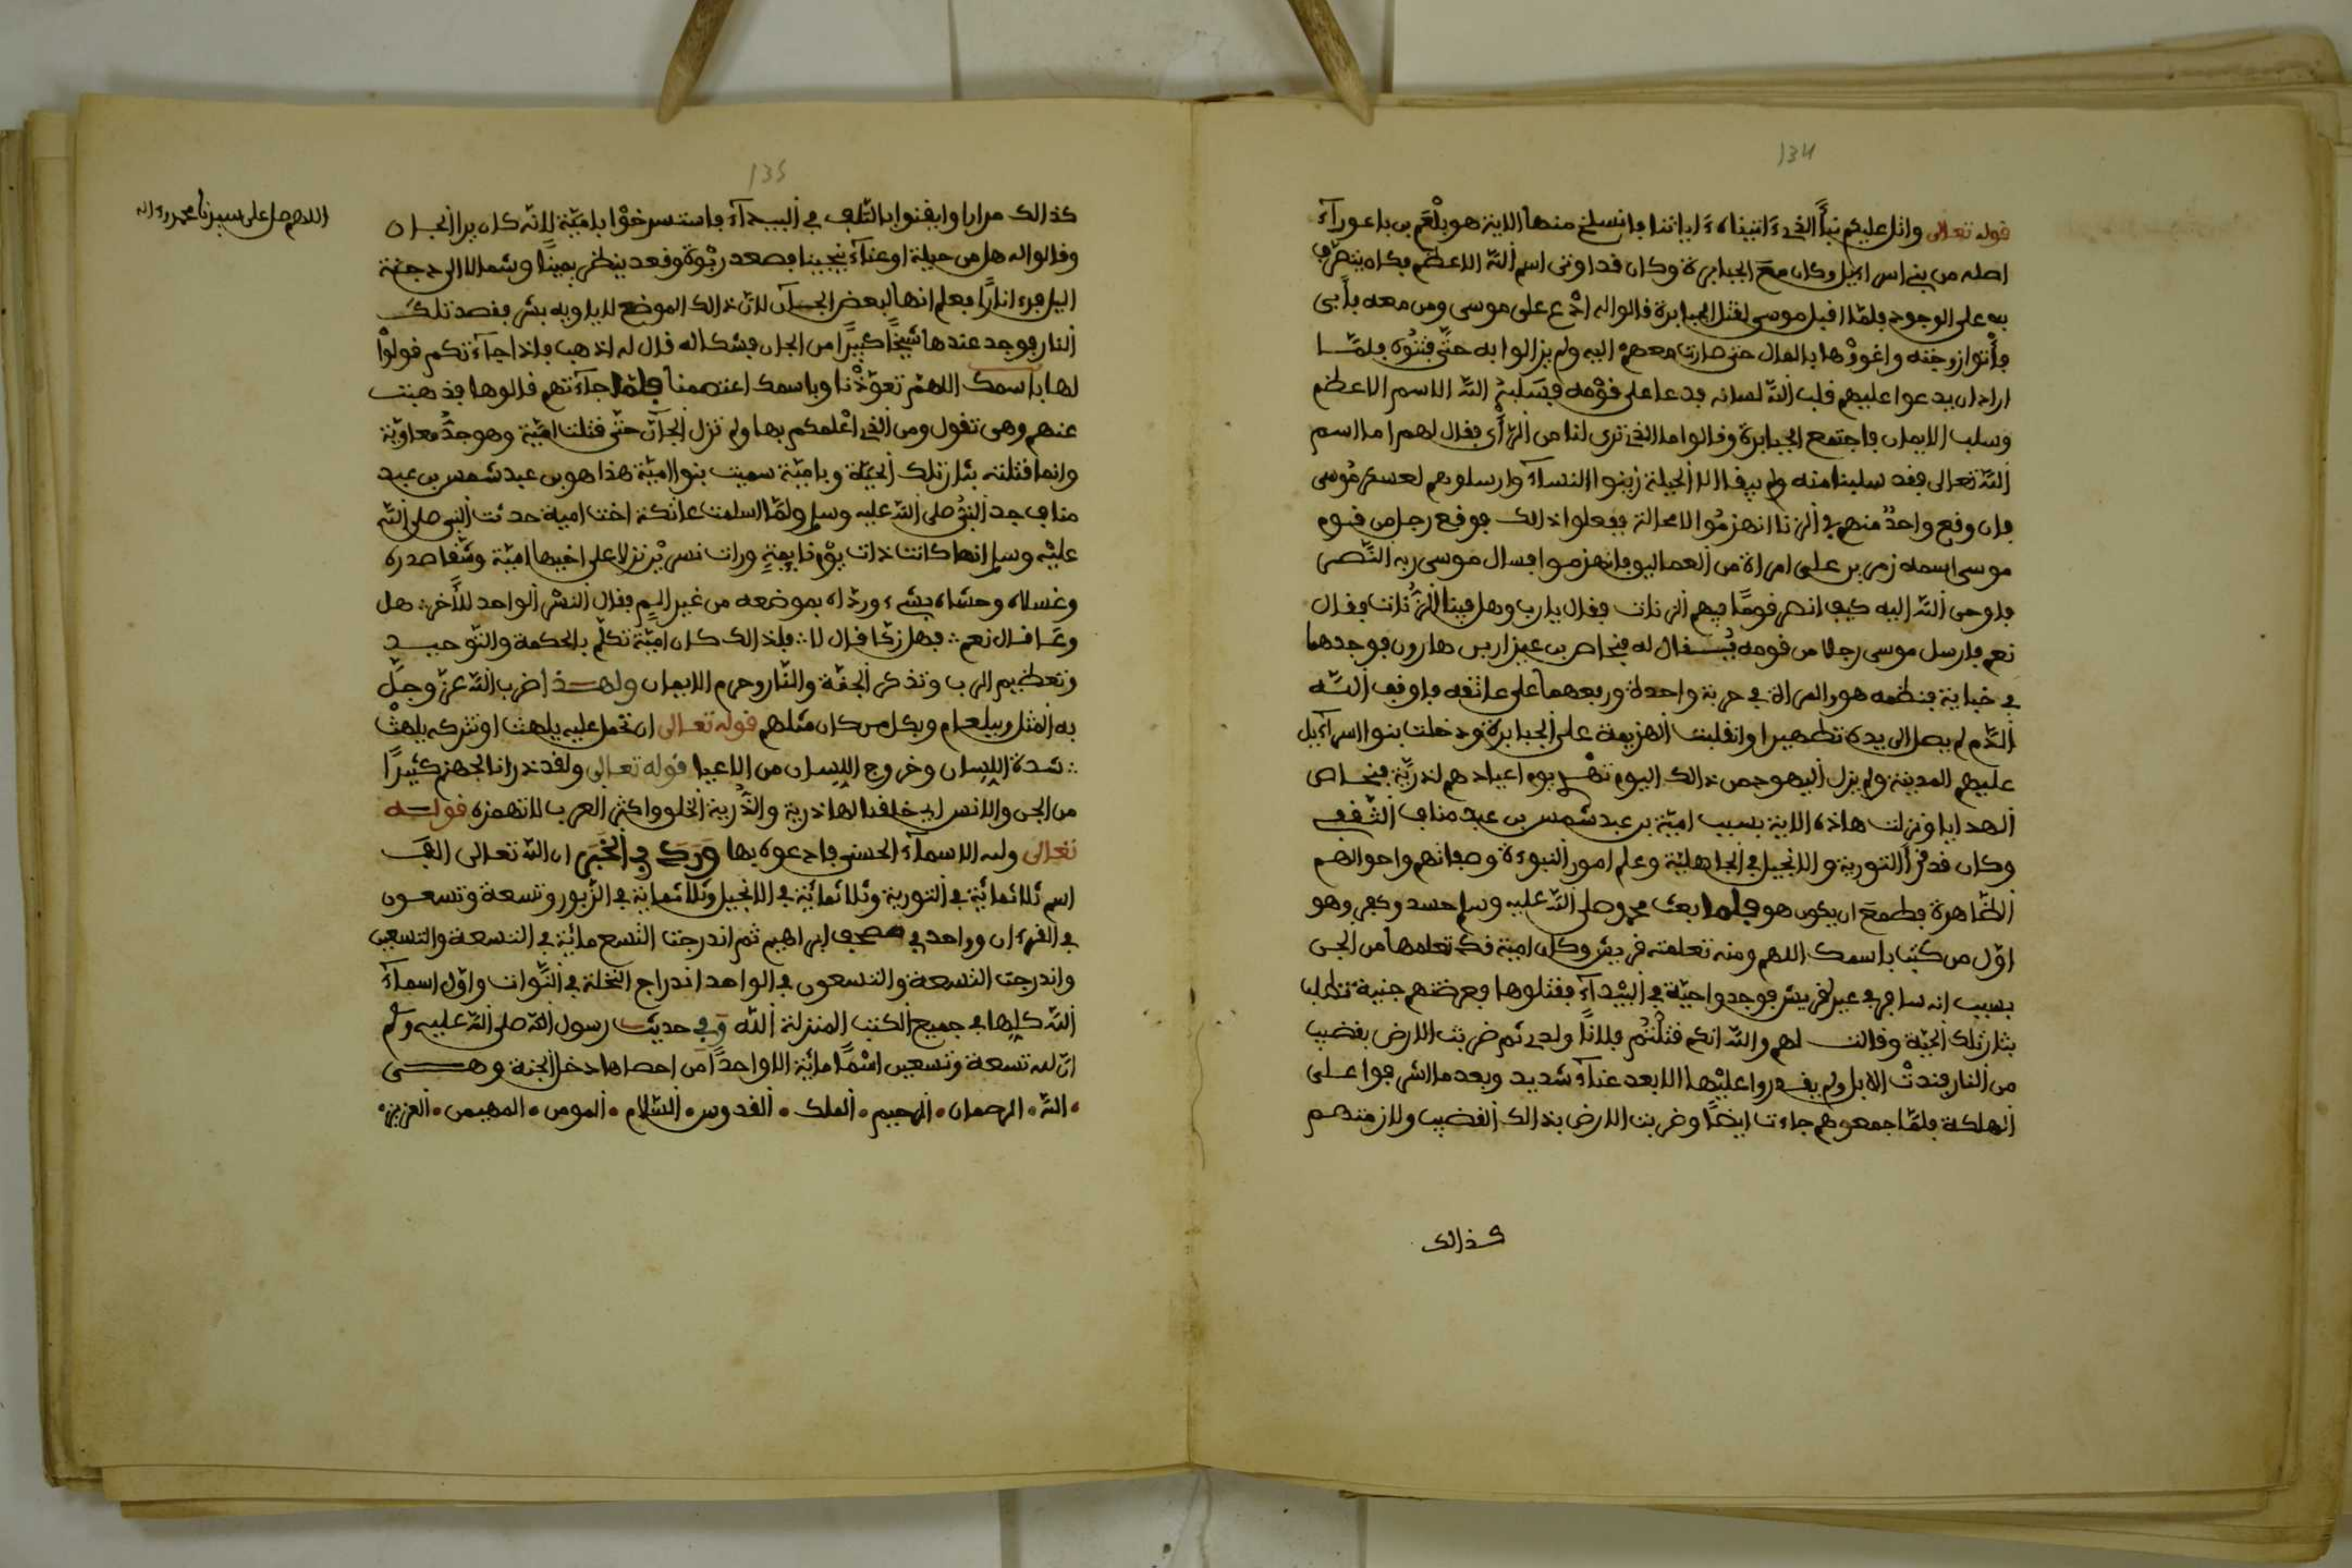 134
قوله تعالى واتل عليكم نبأ الذي ءاتيناه ءاياتنا فانسلخ منها الاية هو بلعم بن باعوراء
اصله من بني اسراءيل وكان مع الجبابرة وكان قد اوتي اسم الله الاعظم فكان يتصرف
به على الوجود فلما اقبل موسى لقتل الجبابرة قالوا له ادع على موسى ومن معه فأبى
فأتوا زوجته واغووها بالمال حتى صارت معهم اليه ولم يزالوا به حتى فتنوه فلمــا
اراد ان يدعوا عليهم قلب الله لسانه فدعا على قومه فسلبه الله الاسم الاعظم
وسلب الايمان فاجتمع الجبابرة وقالوا ما الذي ترى لنا من الرأي فقال لهم اما اسم
الله تعالى فقد سلبنا منه ولم يبق الا الحيلة زينوا النساء وارسلوهم لعسكر موسى
فان وقع واحد منهم في الزنا انهزموا لا محالة ففعلوا ذالك فوقع رجل من قوم
موسى اسمه زمر بن على امراة من العماليق فانهزموا فسال موسى ربه النصر
فاوحى الله اليه كيف انصر قوما فيهم الزنات فقال يارب وهل فينا الزنات فقال
نعم فارسل موسى رجلا من قومه يقال له فنحاص بن عيزار بن هارون فوجدهما
في خباية فنظمه هو والمراة في حربة واحدة ورفعهما على عاتقه فاوقف الله
الدم لم يصل الى يده تطهيرا وانقلبت الهزيمة على الجبابرة ودخلت بنوا اسراءيل
عليهم المدينة ولم يزل اليهود من ذالك اليوم تهــد يوم اعيادهم لذرية فنحاص
الهدايا ونزلت هاذه الاية بسبب امية بن عبد شمس بن عبد مناف الثقفي
وكان قد قرأ التورية والانجيل في الجاهلية وعلم امور النبوءة وصفاتهم واحوالهم
الظاهرة فطمع ان يكون هو فلما بعث محمد صلى الله عليه وسلم حسد وكفر وهو
اول من كتب باسمك اللهم ومنه تعلمته قريش وكان امية قد تعلمها من الجن
بسبب انه سافر في عير لقريش فوجدوا حية في البيداء فقتلوها فعرضتهم جنية تطلب
بثار تلك الحية وقالت لهم والله انكم قتلتم فلانا ولدي ثم ضربت الارض بقضيب
من النار فندت الابل ولم يقدروا عليها الا بعد عناء شديد وبعد ما اشرفوا على
الهلكة فلما جمعوهم جاءت ايضا وضربت الارض بذالك القضيب ولازمتهم
كذالك
135
اللهم صل على سيدنا محمد وءاله
كذالك مرارا وايقنوا بالتلف في البيداء فاستسرخوا بامية لانه كان يرا الجان
وقالوا له هل من حيلة او عناء ينجينا فصعد ربوة وقعد ينظر يمينا وشمالا الى
اليل فرءا نارا فعلم انها لبعض الجان لان ذالك الموضع لا ياويه بشر فقصد تلك
النار فوجد عندها شيخا كبيرا من الجان فشكا له قال له اذهب فاذا جاءتكم قولوا
لها باسمك اللهم تعوذنا وباسمك اعتصمنا فلما جاءتهم قالوها فذهبت
عنهم وهي تقول ومن الذي اعلمكم بها ولم تزل الجان حتى قتلت امية وهو جد معاوية
وانما قتلته بثار تلك الحية وبامية سميت بنوا امية هذا هو بن عبد شمس بن عبد
مناف جد النبي صلى الله عليه وسلم ولما اسلمت عاتكة اخت امية حدثت النبي صلى الله
عليه وسلم انها كانت ذات يوم نايمة ورات نسرين نزلا على اخيها امية وشقا صدره
وغسلاه وحشاه بشيء ورداه بموضعه من غير اليم فقال النسر الواحد للأخر : هل
وعا قال نعم : فهل زكا قال لا : فلذالك كان امية تكلم بالحكمة والتوحيــد
وتعظيم الرب وتذكر الجنة والنار وحرم الايمان ولهــذا ضرب الله عز وجل
به المثل وبيلعام وبكل من كان مثلهم قوله تعالى ان تحمل عليه يلهث او تتركه يلهث
: شدة اللسان وخروج اللسان من الاعيا قوله تعالى ولقد ذرانا لجهنم كثيرا
من الجن والانس اي خلقنا لها ذرية والذرية الخلق واكثر العرب لا تهمزه قولــه
تعالى ولله الاسماء الحسنى فادعوه بها ورد في الخبر ان لله تعالى الف
اسم ثلاثماية في التورية وثلاثماية في الانجيل وثلاثماية في الزبور وتسعة وتسعون
في القرءان وواحد في صحف ابراهيم ثم اندرجت التسع ماية في التسعة والتسعين
واندرجت التسعة والتسعون في الواحد اندراج النخلة في النوات واول اسماء
الله كلها في جميع الكتب المنزلة الله وفي حديث رسول الله صلى الله عليه وسلم
ان لله تسعة وتسعين اسما ماية الا واحدا من احصاها دخل الجنة وهــي
• الله • الرحمان • الرحيم • الملك • القدوس • السلام • المومن • المهيمن • العزيز •